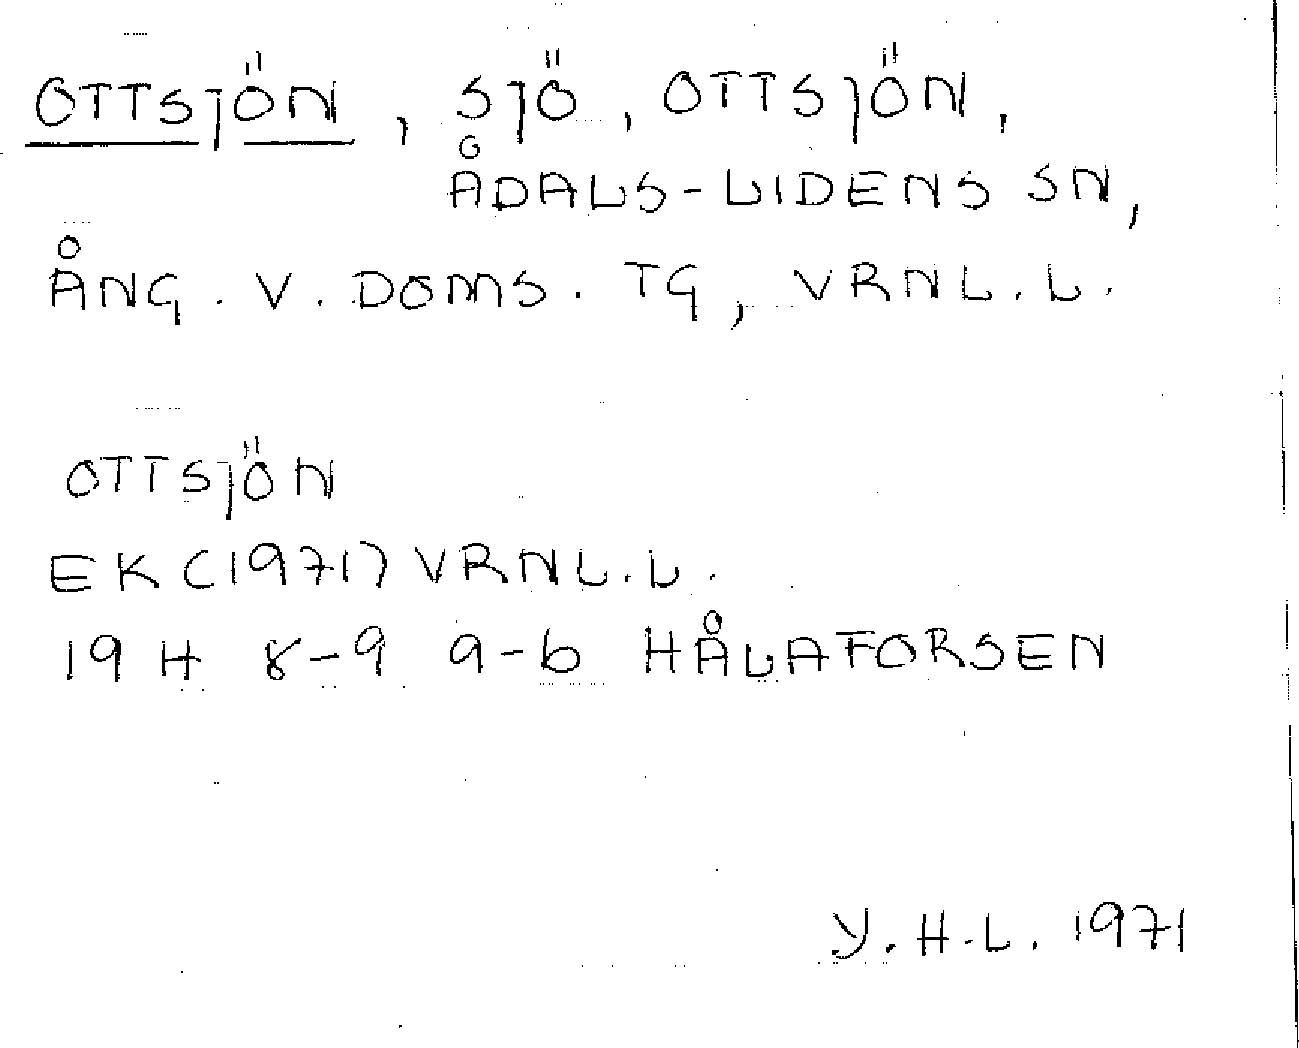 OTTSJÖN, SJÖ, OTTSJÖN,
ÅDALS-LIDENS SN,
ÅNG. V. DOMS. TG, VRNL. L.
OTTSJÖN
EK (1971) VRNL. L.
19 H 8-9 a-b HÅLAFORSEN
Y. H-L. 1971